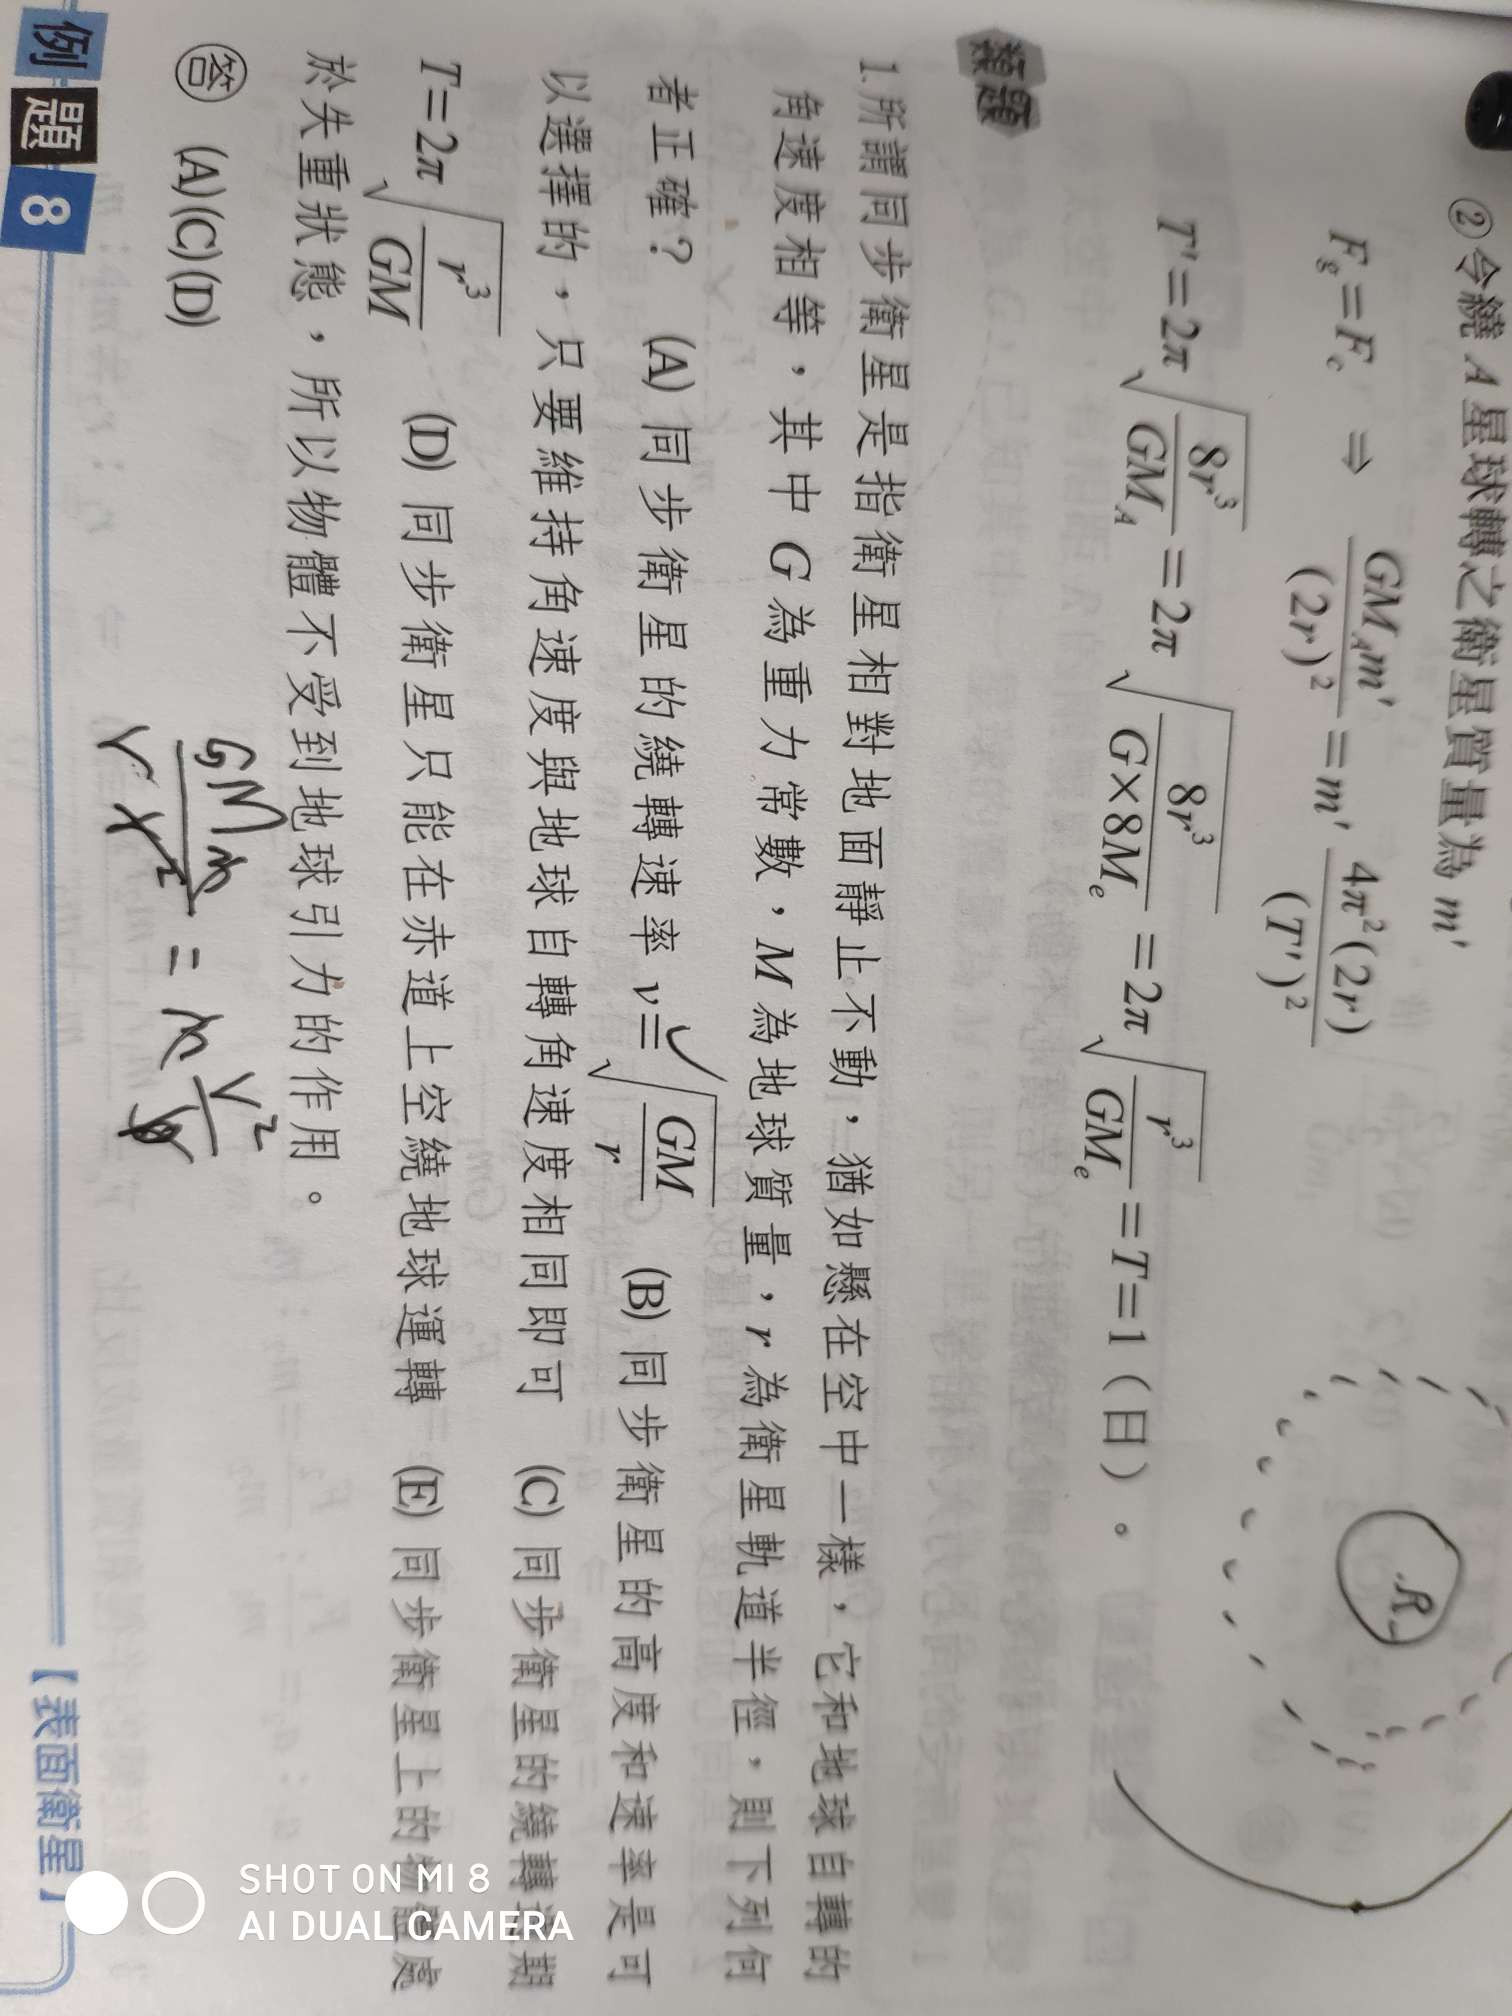 ②令繞 A 星球轉之衛星質量為 m'
F_g = F_c ⇒ GM_A m' / (2r)² = m' 4π²(2r) / (T')²
T' = 2π√(8r³ / GM_A) = 2π√(8r³ / G×8M_e) = 2π√(r³ / GM_e) = T = 1(日)。
R
類題
1.所謂同步衛星是指衛星相對地面靜止不動，猶如懸在空中一樣，它和地球自轉的
角速度相等，其中 G 為重力常數，M 為地球質量，r 為衛星軌道半徑，則下列何
者正確？ (A) 同步衛星的繞轉速率 v=√(GM / r) (B) 同步衛星的高度和速率是可
以選擇的，只要維持角速度與地球自轉角速度相同即可 (C) 同步衛星的繞轉週期
T=2π√(r³ / GM) (D) 同步衛星只能在赤道上空繞地球運轉 (E) 同步衛星上的物體處
於失重狀態，所以物體不受到地球引力的作用。
答 (A)(C)(D)
例題 8
【表面衛星】
SHOT ON MI 8
AI DUAL CAMERA